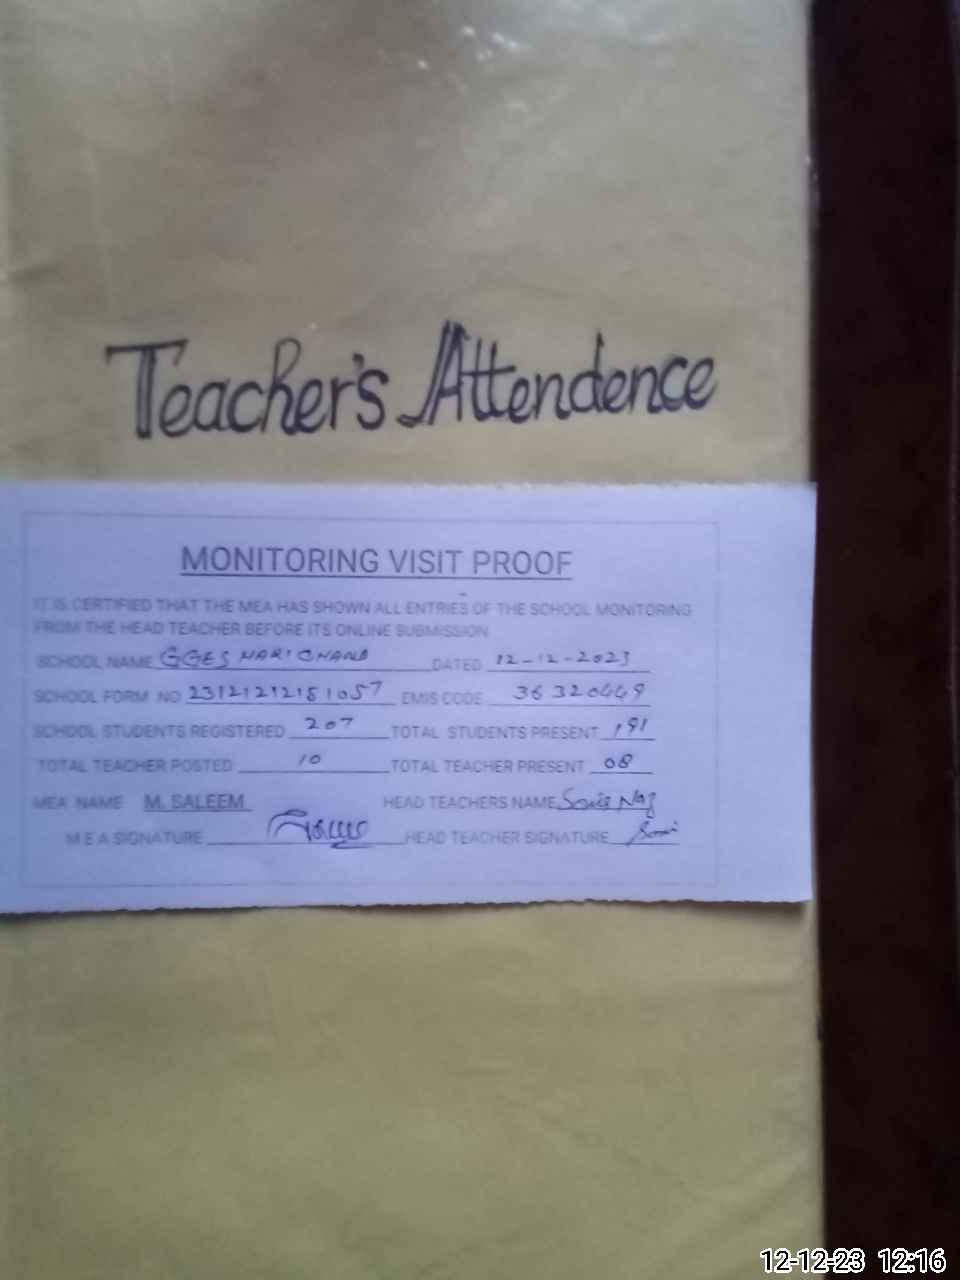 Teacher's Attendence
MONITORING VISIT PROOF
IT IS CERTIFIED THAT THE MEA HAS SHOWN ALL ENTRIES OF THE SCHOOL MONITORING
FROM THE HEAD TEACHER BEFORE ITS ONLINE SUBMISSION
SCHOOL NAME GGES DATED 12-12-2023
SCHOOL FORM NO EMIS CODE 36320449
SCHOOL STUDENTS REGISTERED 207 TOTAL STUDENTS PRESENT 191
TOTAL TEACHER POSTED 10 TOTAL TEACHER PRESENT 08
MEA NAME M. SALEEM HEAD TEACHERS NAME Naz
M E A SIGNATURE HEAD TEACHER SIGNATURE
12-12-23 12:16